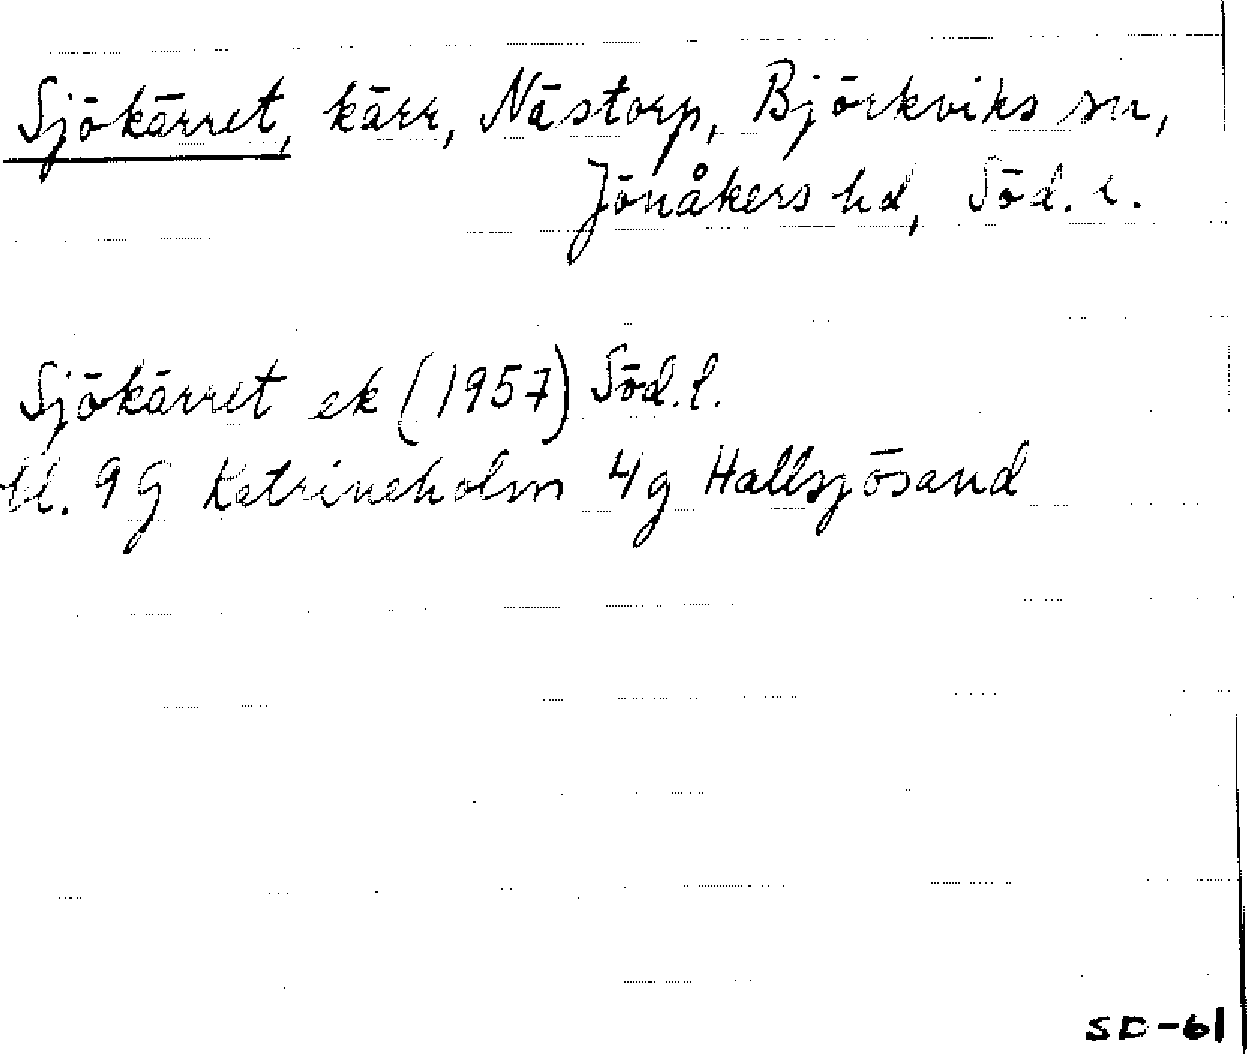 Sjökärret, kärr, Nästorp, Björkviks sn,
Jönåkers hd, Söd. l.
Sjökärret ek (1957) Söd. l.
bl. 9G Katrineholm 4g Hallsjösand
SD-61